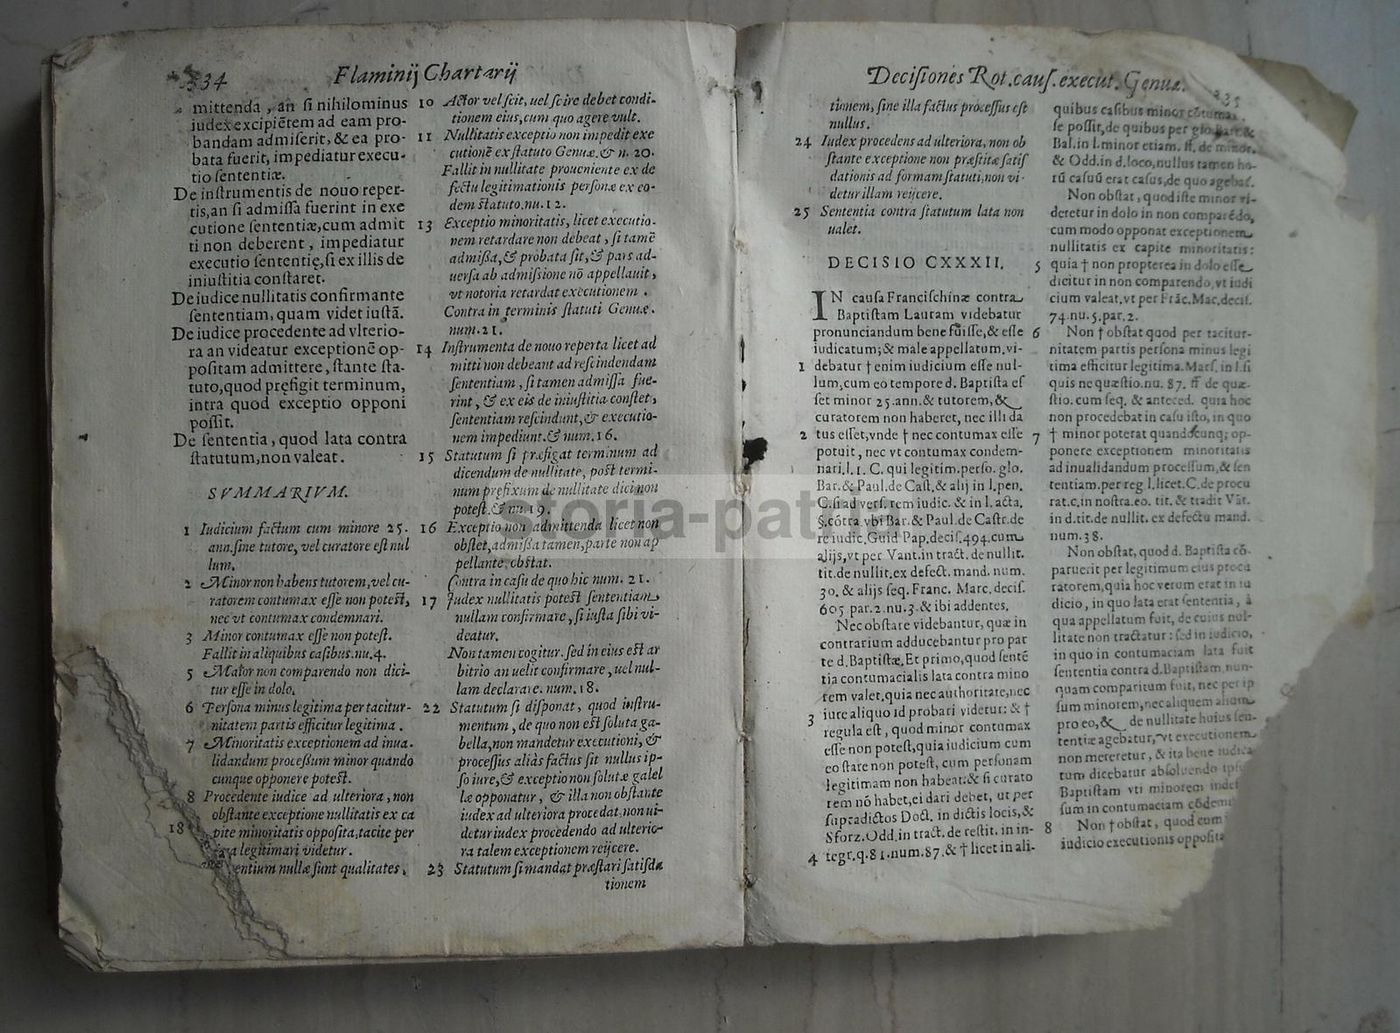 334
Flaminij Chartarij
mittenda, an si nihilominus
iudex excipiẽtem ad eam pro-
bandam admiserit, & ea pro-
bata fuerit, impediatur execu-
tio sententiæ.
De instrumentis de nouo reper-
tis, an si admissa fuerint in exe
cutione sententiæ, cum admit
ti non deberent, impediatur
executio sententię, si ex illis de
iniustitia constaret.
De iudice nullitatis confirmante
sententiam, quam videt iustã.
De iudice procedente ad vlterio-
ra an videatur exceptionẽ op-
positam admittere, stante sta-
tuto, quod pręfigit terminum,
intra quod exceptio opponi
possit.
De sententia, quod lata contra
statutum, non valeat.
SVMMARIVM.
1 Iudicium factum cum minore 25.
ann. sine tutore, vel curatore est nul
lum.
2 Minor non habens tutorem, vel cu-
ratorem contumax esse non potest,
nec vt contumax condemnari.
3 Minor contumax esse non potest.
Fallit in aliquibus casibus. nu. 4.
5 Maior non comparendo non dici-
tur esse in dolo.
6 Persona minus legitima per tacitur-
nitatem partis efficitur legitima.
7 Minoritatis exceptionem ad inua-
lidandum processum minor quando
cunque opponere potest.
8 Procedente iudice ad ulteriora, non
obstante exceptione nullitatis ex ca
pite minoritatis opposita, tacite per
legitimari videtur.
nullæ sunt qualitates.
10 Actor vel scit, uel scire debet condi-
tionem eius, cum quo agere vult.
11 Nullitatis exceptio non impedit exe
cutionẽ ex statuto Genuæ. & n. 20.
Fallit in nullitate proueniente ex de
fectu legitimationis personæ ex eo-
dem statuto. nu. 12.
13 Exceptio minoritatis, licet executio-
nem retardare non debeat, si tamẽ
admissa, & probata sit, & pars ad-
uersa ab admissione nõ appellauit,
vt notoria retardat executionem.
Contra in terminis statuti Genuæ.
num. 21.
14 Instrumenta de nouo reperta licet ad
mitti non debeant ad rescindendam
sententiam, si tamen admissa fue-
rint, & ex eis de iniustitia constet,
sententiam rescindunt, & executio-
nem impediunt. & num. 16.
15 Statutum si præfigat terminum ad
dicendum de nullitate, post termi-
num prefixum de nullitate dici non
potest. & nu. 19.
16 Exceptio non admittenda licet non
obstet, admissa tamen, parte non ap
pellante, obstat.
Contra in casu de quo hic num. 21.
17 Iudex nullitatis potest sententiam
nullam confirmare, si iusta sibi vi-
deatur.
Non tamen cogitur. sed in eius est ar
bitrio an uelit confirmare, uel nul-
lam declarare. num. 18.
22 Statutum si disponat, quod instru-
mentum, de quo non est soluta ga-
bella, non mandetur executioni, &
processus aliàs factus sit nullus ip-
so iure, & exceptio non solutæ gabel
læ opponatur, & illa non obstante
iudex ad ulteriora procedat, non ui-
detur iudex procedendo ad ulterio-
ra talem exceptionem reijcere.
23 Statutum si mandat præstari satisda
tionem
Decisiones Rot. caus. execut. Genuæ.
335
tionem, sine illa factus processus est
nullus.
24 Iudex procedens ad ulteriora, non ob
stante exceptione non præstitæ satis
dationis ad formam statuti, non vi-
detur illam reijcere.
25 Sententia contra statutum lata non
ualet.
DECISIO CXXXII.
IN causa Francischinæ contra
Baptistam Lauram videbatur
pronunciandum bene fuisse, & esse
iudicatum; & male appellatum. vi-
1 debatur † enim iudicium esse nul-
lum, cum eo tempore d. Baptista es
set minor 25. ann. & tutorem, &
curatorem non haberet, nec illi da
2 tus esset, vnde † nec contumax esse
potuit, nec vt contumax condem-
nari. l. 1. C. qui legitim. perso. glo.
Bar. & Paul. de Cast. & alij in l. pen.
C. si ad vers. rem iudic. & in l. acta.
§. cõtra. vbi Bar. & Paul. de Castr. de
re iudic. Guid Pap. decis. 494. cum
alijs, vt per Vant. in tract. de nullit.
tit. de nullit. ex defect. mand. num.
30. & alijs seq. Franc. Marc. decis.
605 par. 2. nu. 3. & ibi addentes.
Nec obstare videbantur, quæ in
contrarium adducebantur pro par
te d. Baptistæ. Et primo, quod sentẽ
tia contumacialis lata contra mino
rem valet, quia nec authoritate, nec
3 iure aliquo id probari videtur: & †
regula est, quod minor contumax
esse non potest, quia iudicium cum
eo stare non potest, cum personam
legitimam non habeat: & si curato
rem nõ habet, ei dari debet, ut per
supradictos Doct. in dictis locis, &
Sforz. Odd. in tract. de restit. in in-
4 tegr. q. 81. num. 87. & † licet in ali-
quibus casibus minor cõtumax
se possit, de quibus per glo. &
Bal. in l. minor etiam. ff. de minor.
& Odd. in d. loco, nullus tamen ho-
rũ casuũ erat casus, de quo agebat.
Non obstat, quod iste minor vi-
deretur in dolo in non comparẽdo,
cum modo opponat exceptionem
nullitatis ex capite minoritatis:
5 quia † non propterea in dolo esse
dicitur in non comparendo, vt iudi
cium valeat, vt per Frãc. Mac. decis.
74. nu. 5. par. 2.
6 Non † obstat quod per tacitur-
nitatem partis persona minus legi
tima efficitur legitima. Mars. in l. si
quis ne quæstio. nu. 87. ff de quæ-
stio. cum seq. & anteced. quia hoc
non procedebat in casu isto, in quo
7 † minor poterat quandocunq; op-
ponere exceptionem minoritatis
ad inualidandum processum, & sen
tentiam. per reg l. licet. C. de procu
rat. c. in nostra. eo. tit. & tradit Vãt.
in d. tit. de nullit. ex defectu mand.
num. 38.
Non obstat, quod d. Baptista cõ-
paruerit per legitimum eius procu
ratorem, quia hoc verum erat in iu
dicio, in quo lata erat sententia, à
qua appellatum fuit, de cuius nul-
litate non tractatur: sed in iudicio,
in quo in contumaciam lata fuit
sententia contra d. Baptistam, nun-
quam comparitum fuit, nec per ip
sum minorem, nec aliquem alium
pro eo, & de nullitate huius sen-
tentiæ agebatur, vt executionem
non mereretur, & ita bene iudica
tum dicebatur absoluendo
Baptistam vti minorem
sum in contumaciam
8 Non † obstat, quod cum
iudicio executionis opposita